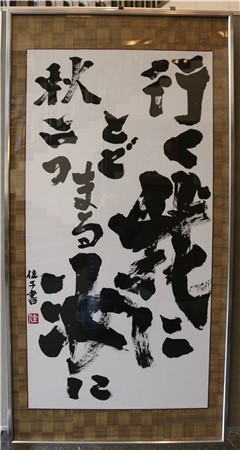 行く我に
とどまる汝に
秋二つ
佳子書